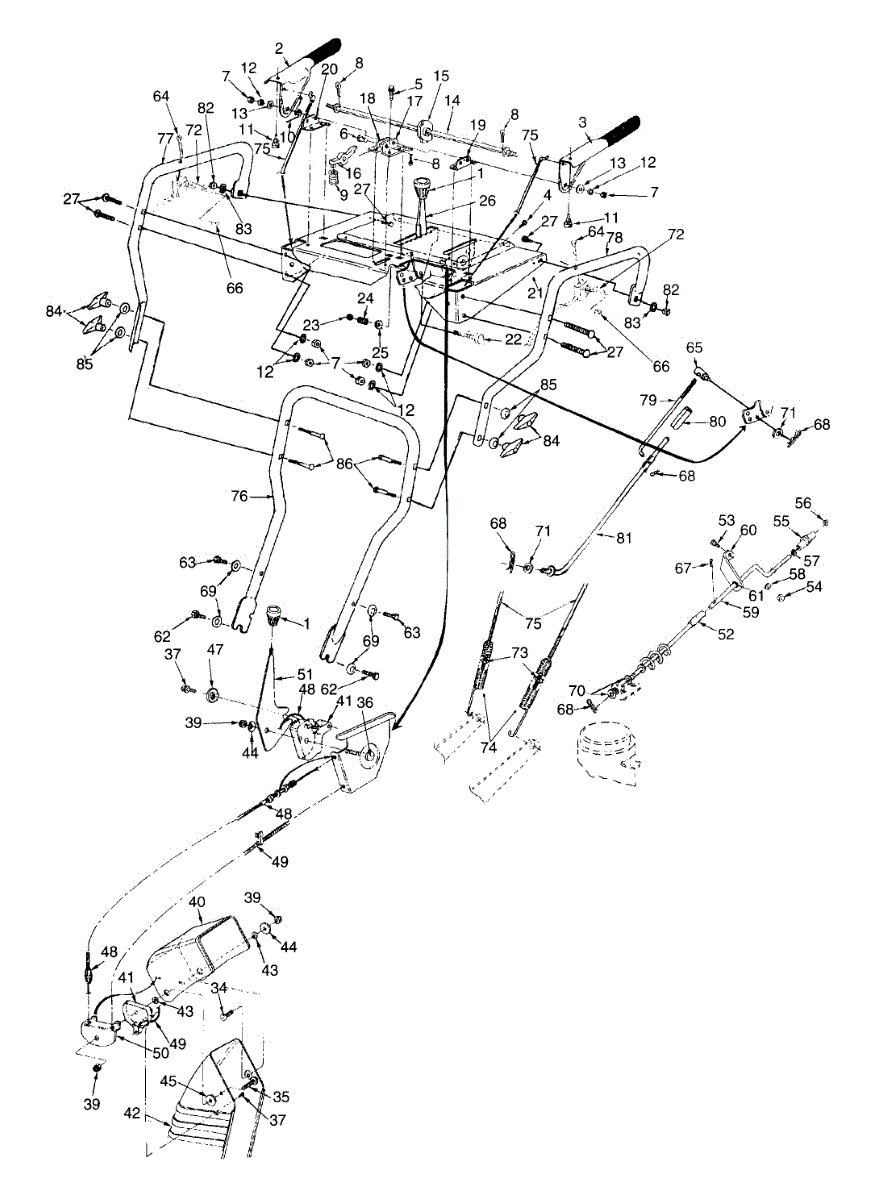 2
8
7
12
20
5
15
18
17
14
8
3
64
82
13
10
11
6
19
75
77
72
75
16
8
13
12
9
1
7
27
27
26
4
11
83
27
64
78
72
66
21
82
84
24
83
23
22
66
85
25
27
65
12
7
12
85
79
71
80
68
84
86
68
76
56
53
60
55
68
71
81
63
67
57
58
54
69
61
59
62
1
69
63
75
52
37
47
51
73
48
62
41
36
70
39
68
44
74
48
49
40
39
48
44
43
41
34
43
50
49
45
35
39
42
37